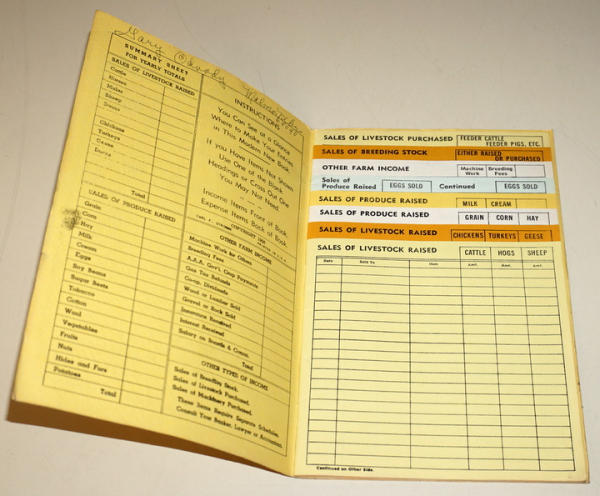 Mary
SUMMARY SHEET
FOR YEARLY TOTALS
SALES OF LIVESTOCK RAISED
Cattle
Horses
Mules
Sheep
Swine
Chickens
Turkeys
Geese
Ducks
Total
SALES OF PRODUCE RAISED
Grain
Corn
Hay
Milk
Cream
Eggs
Soy Beans
Sugar Beets
Tobacco
Cotton
Wool
Vegetables
Fruits
Nuts
Hides and Furs
Potatoes
Total
INSTRUCTIONS
You Can See at a Glance
Where to Make Your Entries
in This Modern New Book.
If You Have Items Not Shown
Use One of the Blank
Headings or Cross Out One
You May Not Need.
Income Items Front of Book.
Expense Items Back of Book.
COPYRIGHT
OTHER FARM INCOME
Machine Work for Others
Breeding Fees
A.A.A. Gov't. Crop Payments
Gas Tax Refunds
Co-op. Dividends
Wood or Lumber Sold
Gravel or Rock Sold
Insurance Received
Interest Received
Salary on Boards & Comm.
Total
OTHER TYPES OF INCOME
Sales of Breeding Stock.
Sales of Livestock Purchased.
Sales of Machinery Purchased.
These Items Require Separate Schedules.
Consult Your Banker, Lawyer or Accountant.
SALES OF LIVESTOCK PURCHASED FEEDER CATTLE
FEEDER PIGS, ETC.
SALES OF BREEDING STOCK EITHER RAISED
OR PURCHASED
OTHER FARM INCOME Machine Work Breeding Fees
Sales of
Produce Raised EGGS SOLD Continued EGGS SOLD
SALES OF PRODUCE RAISED MILK CREAM
SALES OF PRODUCE RAISED GRAIN CORN HAY
SALES OF LIVESTOCK RAISED CHICKENS TURKEYS GEESE
SALES OF LIVESTOCK RAISED CATTLE HOGS SHEEP
Date Sold To Item Amt. Amt. Amt.
Continued on Other Side.